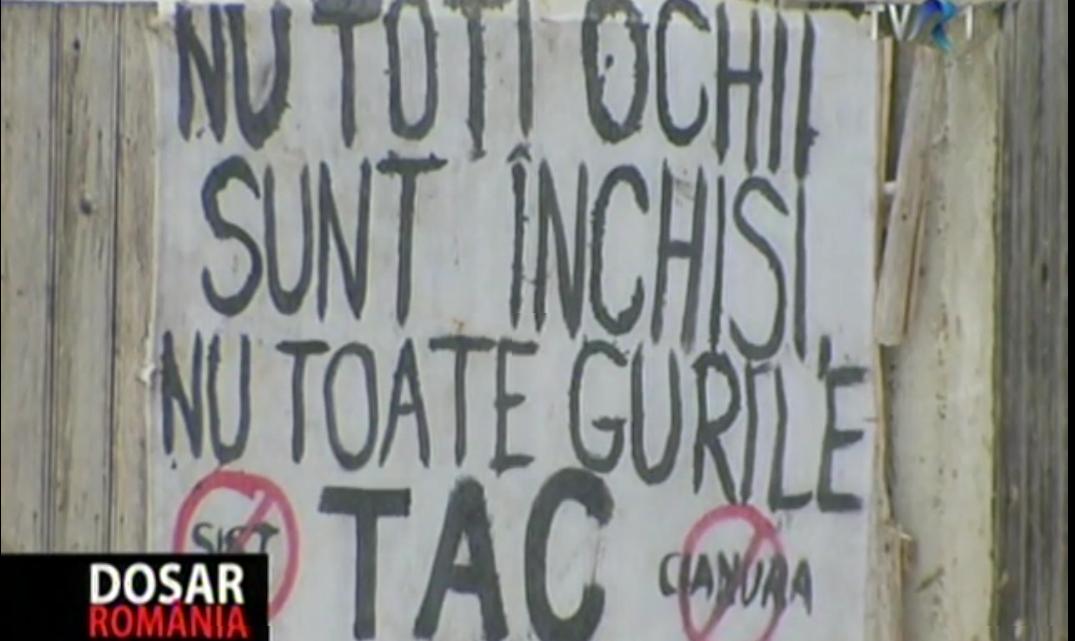 TVR 1
NU TOTI OCHII
SUNT ÎNCHISI,
NU TOATE GURILE
TAC
CIANURA
DOSAR
ROMÂNIA